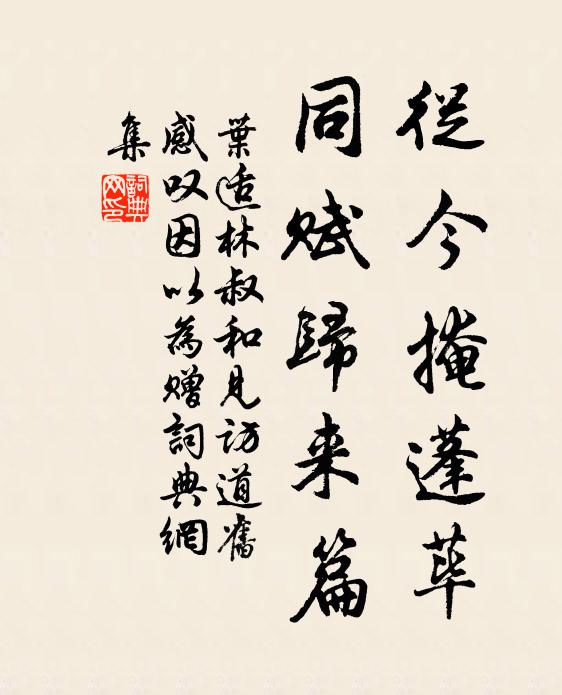 從今掩蓬蓽
同賦歸来篇
葉适林叔和見訪道舊
感叹因以為贈詞典網
集
詞典
网印